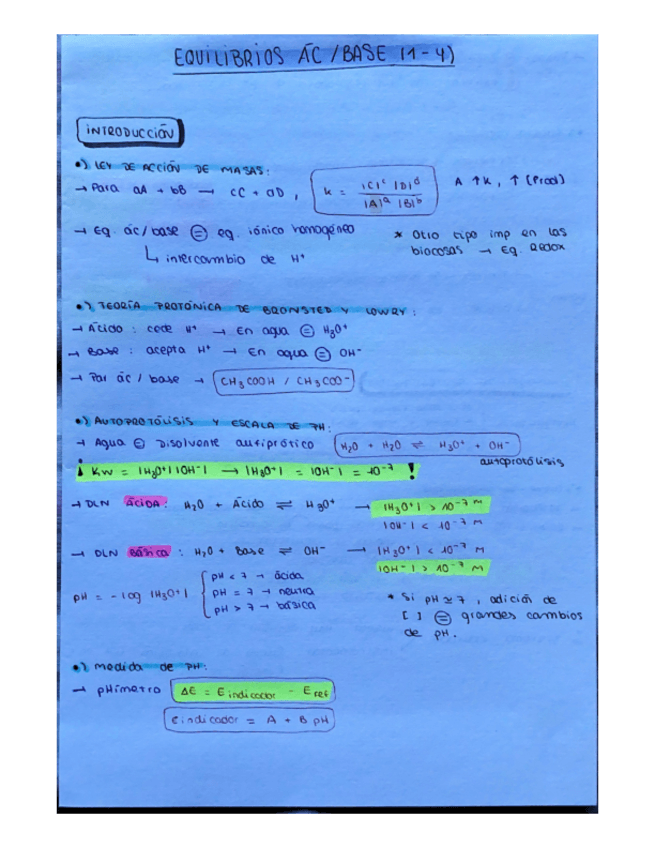 EQUILIBRIOS ÁC / BASE (1-4)
INTRODUCCIÓN
•) LEY DE ACCIÓN DE MASAS:
→ Para aA + bB → cC + dD , K = |C|ᶜ |D|ᵈ / |A|ᵃ |B|ᵇ A ↑K, ↑ [Prod]
→ Eq. ác/base ⊜ eq. iónico homogéneo
↳ intercambio de H⁺
* Otro tipo imp en las
biocosas → Eq. Redox
•) TEORÍA PROTÓNICA DE BRONSTED Y LOWRY:
→ Ácido : cede H⁺ → En agua ⊜ H₃O⁺
→ Base : acepta H⁺ → En agua ⊜ OH⁻
→ Par ác / base → CH₃COOH / CH₃COO⁻
•) AUTOPROTÓLISIS Y ESCALA DE PH:
→ Agua ⊜ Disolvente anfiprótico H₂O + H₂O ⇌ H₃O⁺ + OH⁻
autoprotólisis
¡ Kw = |H₃O⁺| |OH⁻| → |H₃O⁺| = |OH⁻| = 10⁻⁷ !
→ DLN ÁCIDA: H₂O + Ácido ⇌ H₃O⁺ → |H₃O⁺| > 10⁻⁷ M
|OH⁻| < 10⁻⁷ M
→ DLN Básica : H₂O + Base ⇌ OH⁻ → |H₃O⁺| < 10⁻⁷ M
|OH⁻| > 10⁻⁷ M
pH = - log |H₃O⁺|
pH < 7 → ácida
pH = 7 → neutra
pH > 7 → básica
* Si pH ≃ 7 , adición de
[ ] ⊜ grandes cambios
de pH.
•) Medida de PH:
→ pHímetro ΔE = E indicador - E ref
E indicador = A + B pH